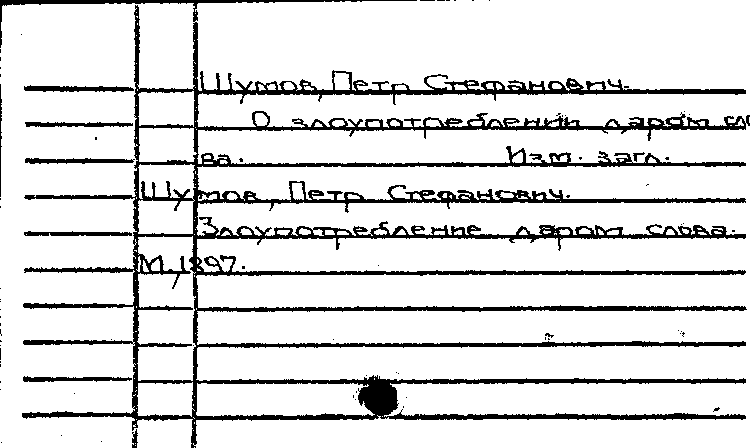 Шумов, Петр Стефанович.
О злоупотреблении даром сло
ва. Изм. загл.
Шумов, Петр Стефанович.
Злоупотребление даром слова.
М, 1897.